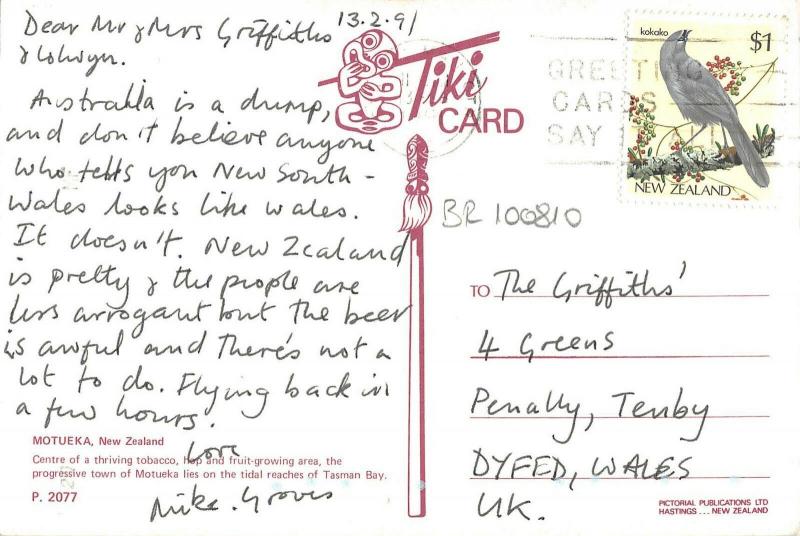 13.2.91
Dear Mr & Mrs Griffiths
& Lolwyn.
Australia is a dump,
and don't believe anyone
who tells you New South-
Wales looks like Wales.
It doesn't. New Zealand
is pretty & the people are
less arrogant but the beer
is awful and there's not a
lot to do. Flying back in
a few hours.
Love
Mike. Groves
MOTUEKA, New Zealand
Centre of a thriving tobacco, hop and fruit-growing area, the
progressive town of Motueka lies on the tidal reaches of Tasman Bay.
P. 2077
Tiki
CARD
GREETING
CARDS
SAY
kokako
$1
NEW ZEALAND
BR 100810
TO The Griffiths'
4 Greens
Penally, Tenby
DYFED, WALES
UK.
PICTORIAL PUBLICATIONS LTD
HASTINGS ... NEW ZEALAND